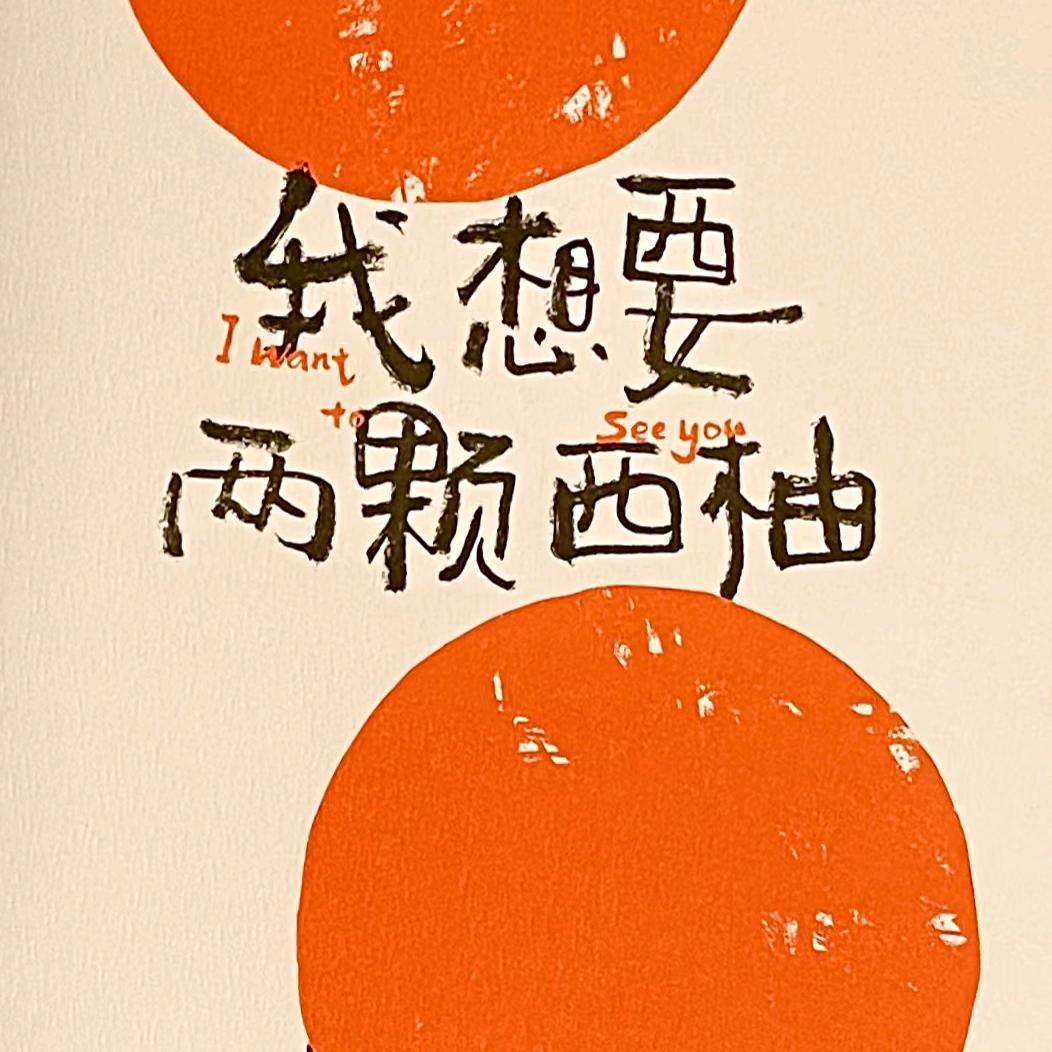 我想要
I want
to
See you
两颗西柚